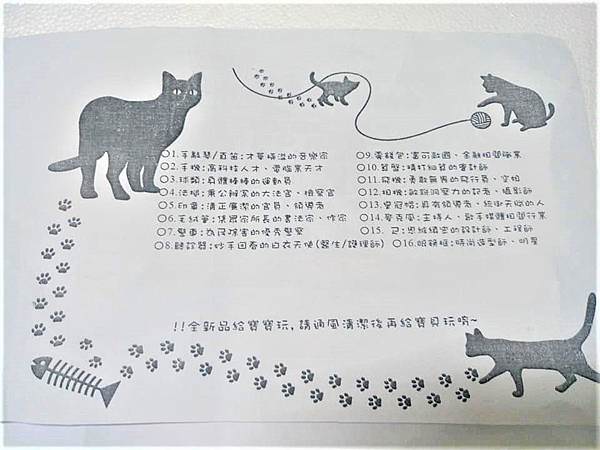 ○1.手鬆琴/直笛:才華橫溢的音樂家
○2.手機:高科技人才、電腦業天才
○3.球類:身體棒棒的運動員
○4.法槌:秉公辦案的大法官、檢察官
○5.印章:清正廉潔的官員、領導者
○6.毛筆:集眾家所長的書法家、作家
○7.警車:為民除害的優秀警察
○8.聽診器:妙手回春的白衣天使(醫生/護理師)
○9.零錢包:富可敵國、金融相關行業
○10.算盤:精打細算的會計師
○11.飛機:勇敢無畏的飛行員、空姐
○12.相機:敏銳洞察力的記者、攝影師
○13.皇冠:具有領導者、統御天賦的人
○14.麥克風:主持人、歌手媒體相關行業
○15. 尺:思維縝密的設計師、工程師
○16.眼鏡框:時尚造型師、明星
!!全新品給寶寶玩,請通風清潔後再給寶貝玩唷~